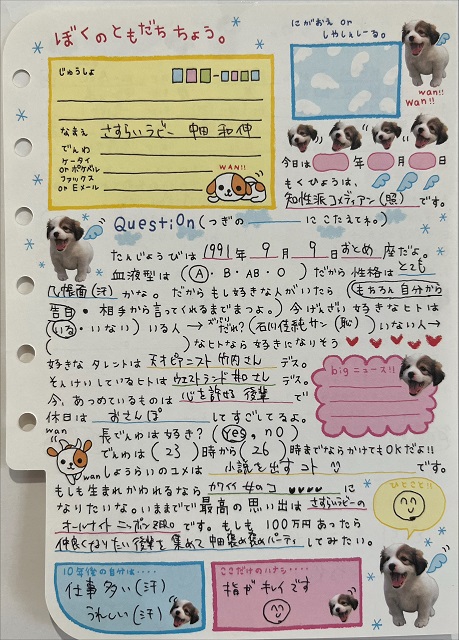 ぼくのともだちちょう。
にがおえ or
しゃしんしーる。
じゅうしょ
なまえ さすらいラビー 中田 和伸
でんわ
ケータイ
orポケベル
ファックス
orEメール
WAN!!
wan!!
Wan!!
今日は 年 月 日
もくひょうは、
知性派コメディアン(照)です。
QuestiOn(つぎの にこたえてネ。)
たんじょうびは1991年9月9日おとめ座だよ。
血液型は(A・B・AB・O)だから性格はとても
几帳面(汗)かな。だからもし好きな人がいたら(もちろん自分から
告白・相手から言ってくれるまでまつよ)。今げんざい好きなヒトは
(いる・いない)いる人→ズバリだれ?(石川佳純サン(恥))いない人→
( )なヒトなら好きになりそう
好きなタレントは 天才ピアニスト竹内さん デス。
そんけいしているヒトは ウエストランド井口さん デス。
今、あつめているものは 心を許せる後輩 で
休日は おさんぽ してすごしてるよ。
big ニュース!!
wan
長でんわは好き?(yes, nO)
でんわは(23)時から(26)時までならかけてもOKだよ!!
wan
しょうらいのユメは 小説を出すコト です。
もしも生まれかわれるなら カワイイ女のコ に
なりたいな。いままでで最高の思い出は さすらいラビーの
オールナイトニッポンZERO です。もしも100万円あったら
仲良くなりたい後輩を集めて中田褒め褒めパーティ してみたい。
ひとこと!!
10年後の自分は・・・・
仕事多い(汗)
うれしい(汗)
ここだけのハナシ・・・・
指がキレイです